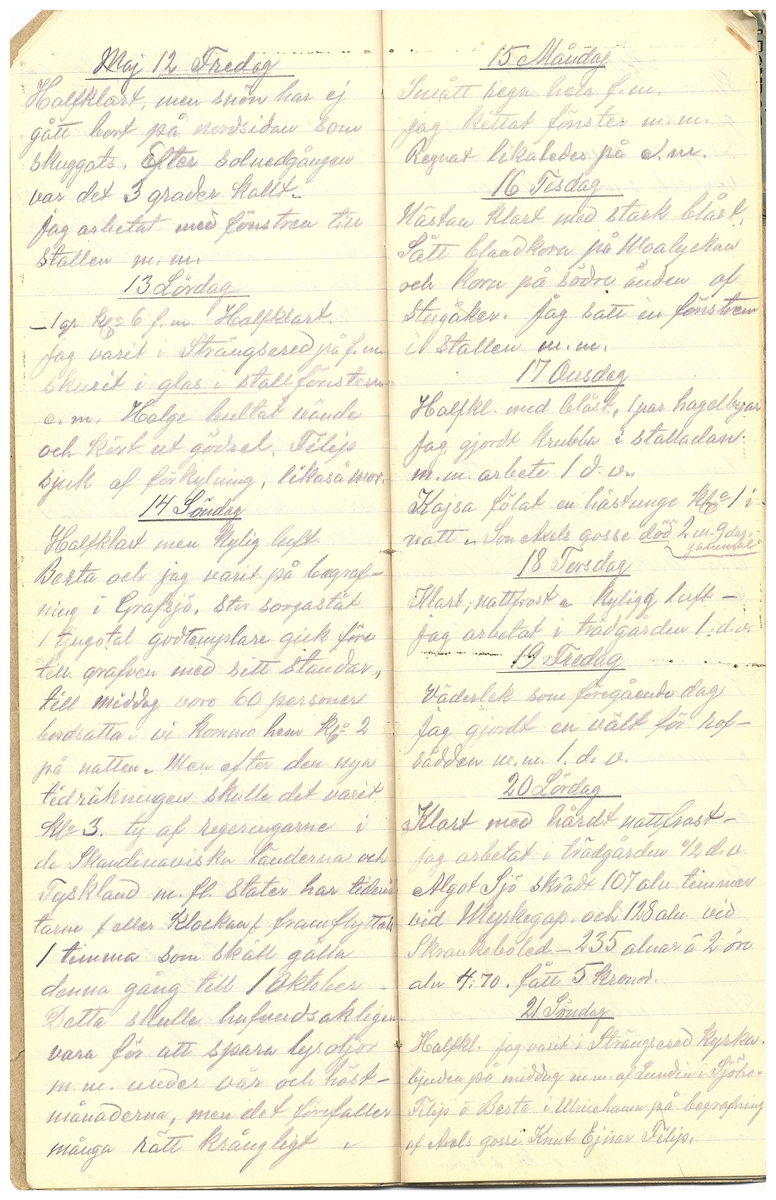 Maj 12 Fredag
Halfklart, men snön har ej
gått bort på nordsidan som
skuggats. Efter solnedgången
var det 3 grader kallt.
Jag arbetat med fönstren till
stallen m.m.
13 Lördag
-1 gr kl 6 f.m. Halfklart.
Jag varit i Strängsered på f.m.
skurit i glas i stallfönstern
e.m. Helge hultat vände
och kört ut gödsel, Filip
sjuk af förkylning, likaså mor.
14 Söndag
Halfklart men kylig luft
Berta och jag varit på begraf-
ning i Grafsjö, stor sorgståt
1 tjugotal godtemplare gick före
till grafven med sitt standar,
till middag voro 60 personer
bordsatta. vi kommo hem kl 2
på natten. Men efter den nya
tidräkningen skulle det varit
kl 3. ty af regeringarne i
de Skandinaviska länderna och
Tyskland m. fl. stater har tiden
/eller Klockan/ framflyttats
1 timma som skall gälla
denna gång till 1 Oktober -
Detta skulle hufvudsakligen
vara för att spara lysoljor
m.m. under vår och höst-
månaderna, men det förefaller
många rätt krångligt.
15 Måndag
Smått regn hela f.m.
jag kittat fönster m.m.
Regnat likaledes på e.m.
16 Tisdag
Nästan klart med stark blåst,
Sått blandkorn på Moalyckan
och korn på södra änden af
Stugåker. Jag satt in fönstren
i stallen m.m.
17 Onsdag
Halfkl. med blåst, 1 par hagelbyar
Jag gjordt krubba i stalladan
m.m. arbete 1 d.v.
Kajsa fölat en hästunge kl 1 i
natt. Son Axels gosse död 2 m. 9 dag.
gammal
18 Torsdag
Klart, nattfrost. kylig luft -
Jag arbetat i trädgården 1. d.v.
19 Fredag
Väderlek som föregående dag
Jag gjordt en vält för rof-
sådden m.m. 1. d. v.
20 Lördag
Klart med hårdt nattfrost -
Jag arbetat i trädgården 1/2 d.v
Algot Sjö skrädt 107 aln timmer
vid Myrkegap och 128 aln vid
Skrankeboled - 235 alnar á 2 öre
aln 4.70. fått 5 kronor.
21 Söndag
Halfkl. Jag varit i Strängsered kyrka.
bjuden på middag m.m. af Lundin i Sjöbo.
Filip o Berta i Ulricehamn på begrafning
af Axels gosse Knut Ejnar Filip.